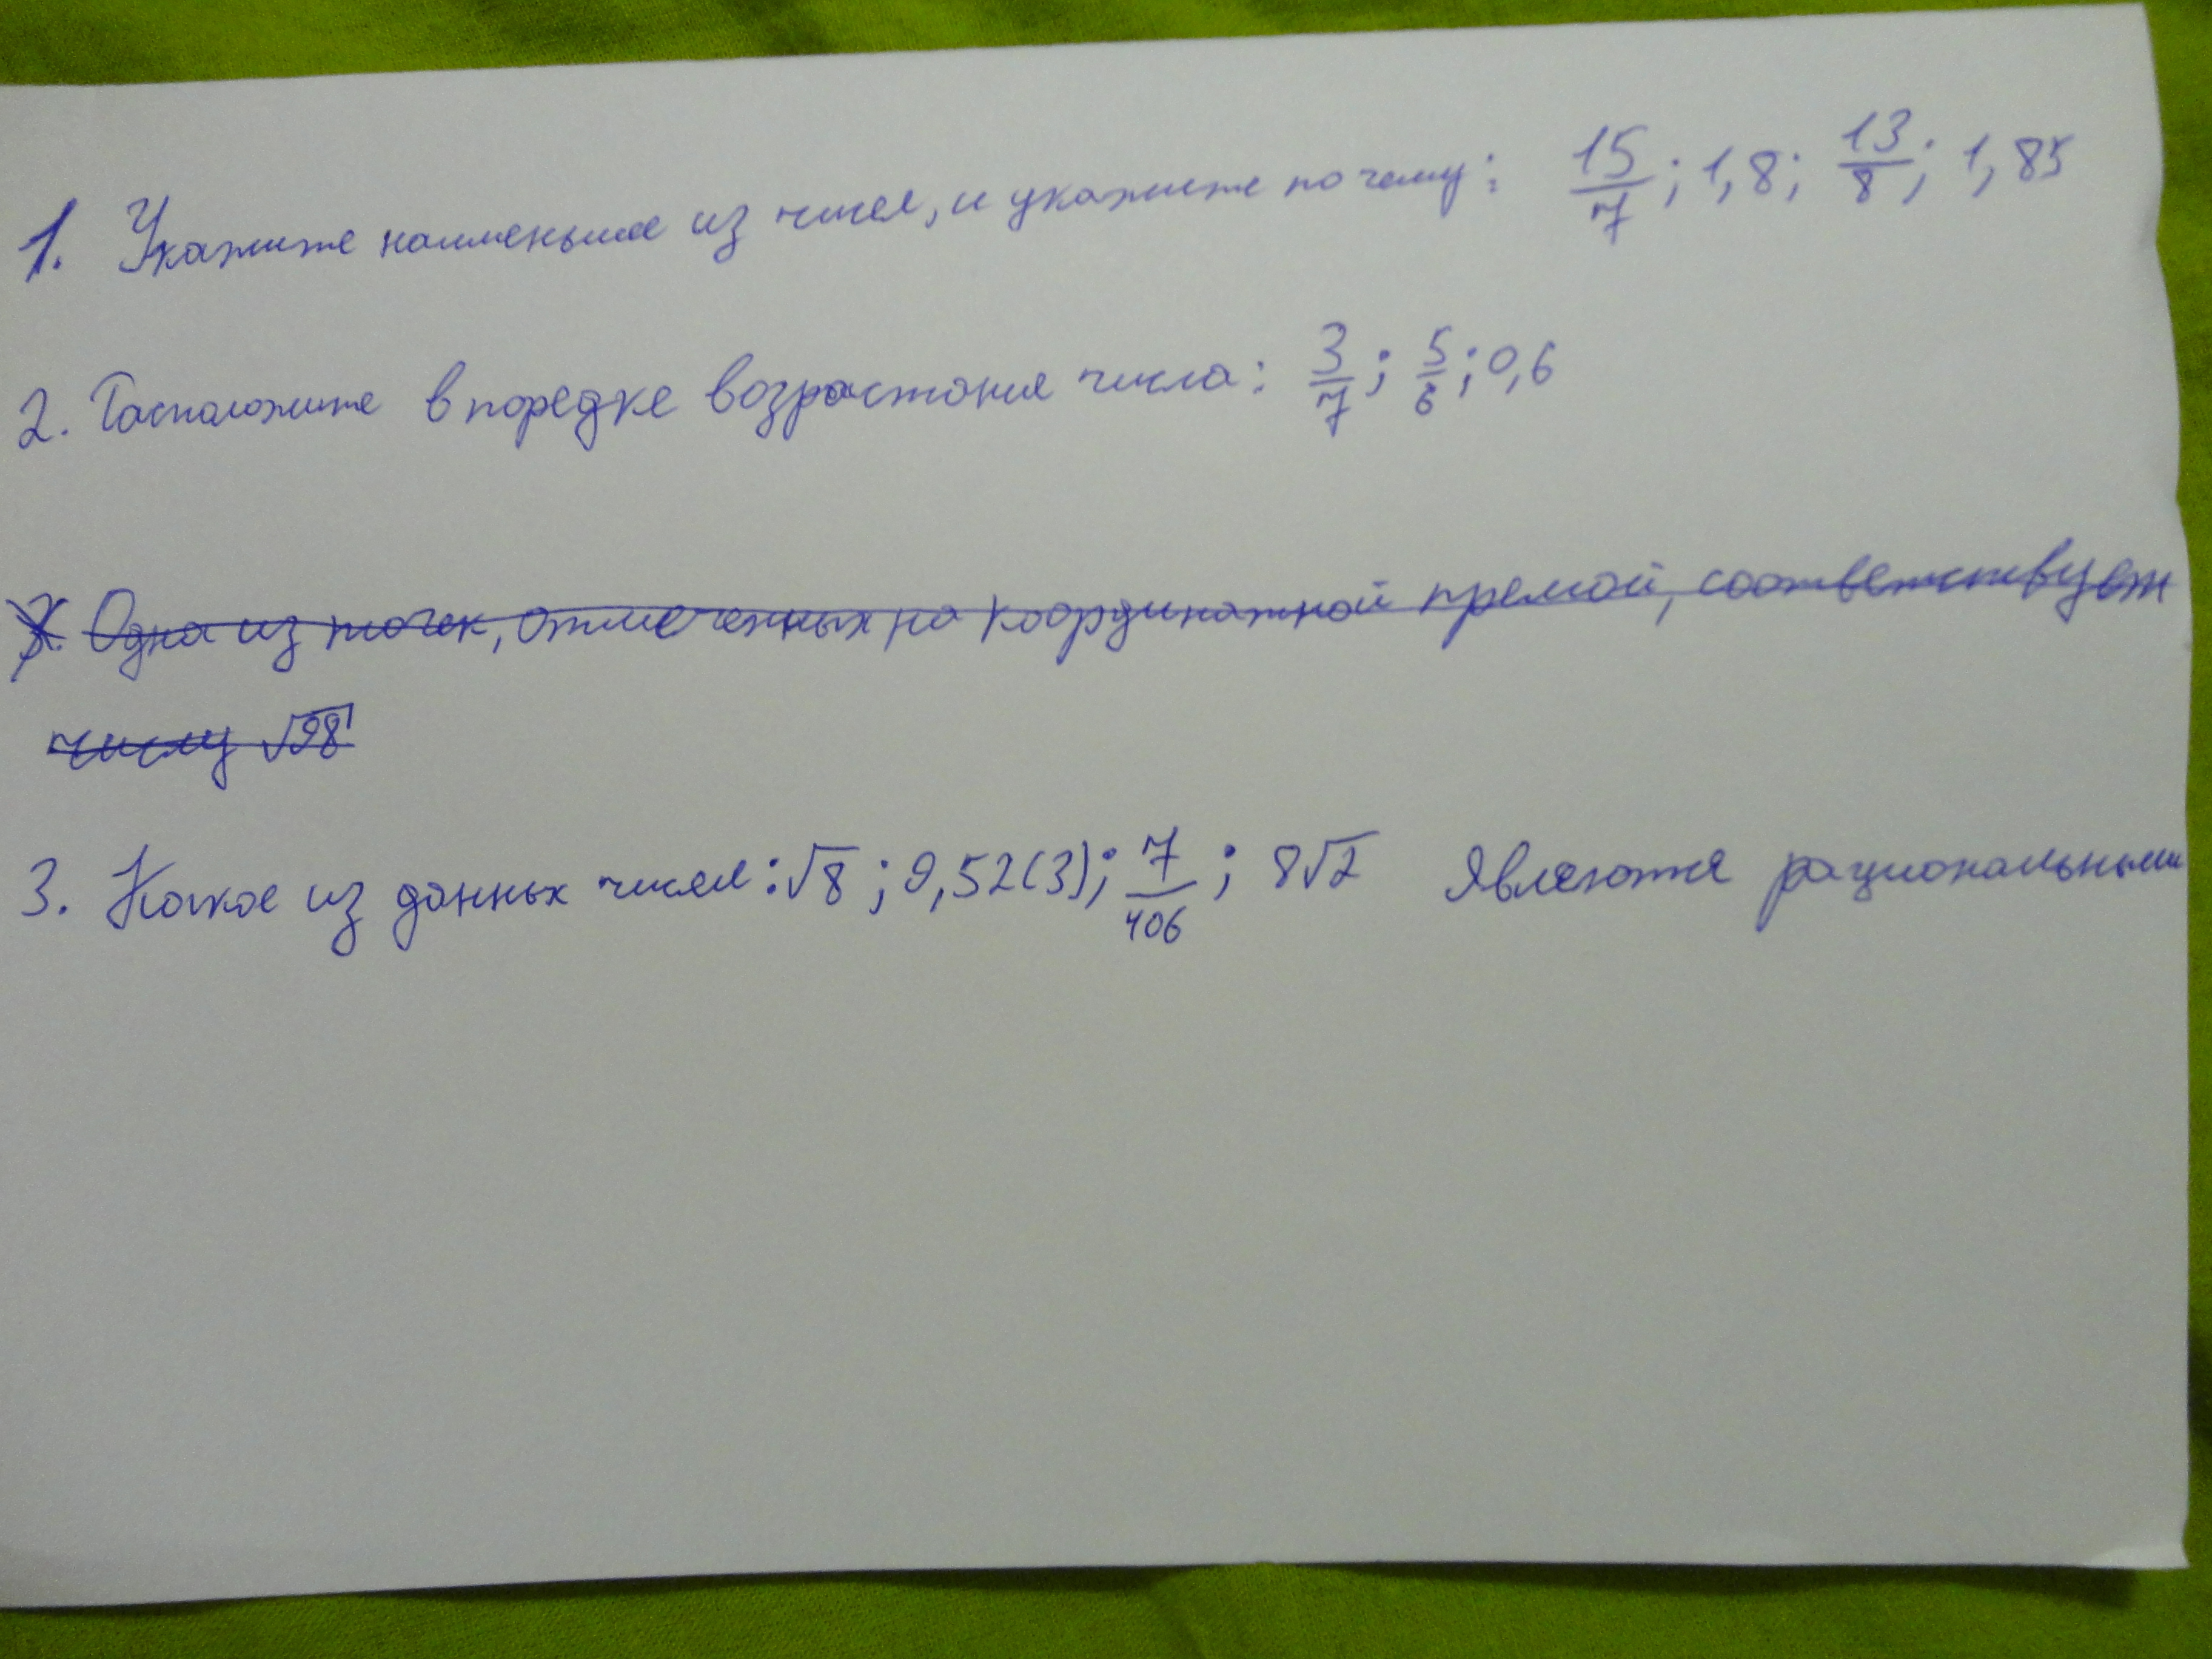 1. Укажите наименьшее из чисел, и укажите почему: 15/7; 1,8; 13/8; 1,85
2. Расположите в поредке возрастания числа: 3/7; 5/6; 0,6
3. Одна из точек, отмеченных на координатной премой, соответствует
числу √98
3. Какое из данных чисел: √8; 9,52(3); 7/406; 8√2 Являются рациональными